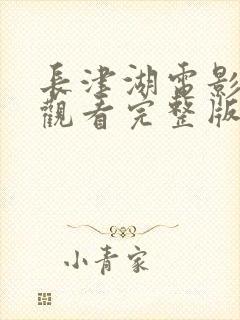 長津湖電影
觀看完整版
小青家